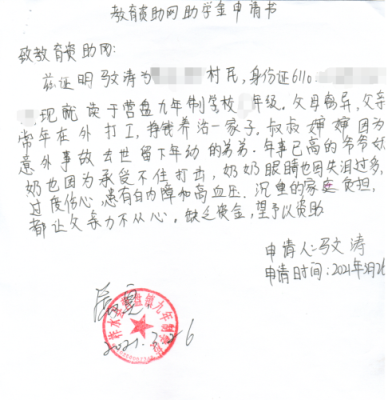 教育资助网助学金申请书
致教育资助网:
兹证明马文涛为 村民,身份证6110
,现就读于营盘九年制学校 年级。父母离异,父亲
常年在外打工,挣钱养活一家子。叔叔婶婶因为
意外事故去世留下年幼的弟弟。年事已高的爷爷奶
奶也因为承受不住打击,奶奶眼睛也因流泪过多,
过度伤心,患有白内障和高血压。沉重的家庭负担,
都让父亲力不从心。缺乏资金,望予以资助
申请人:马文涛
申请时间:2021年3月26
情况属实
柞水县营盘镇九年制学校
2021.3.26